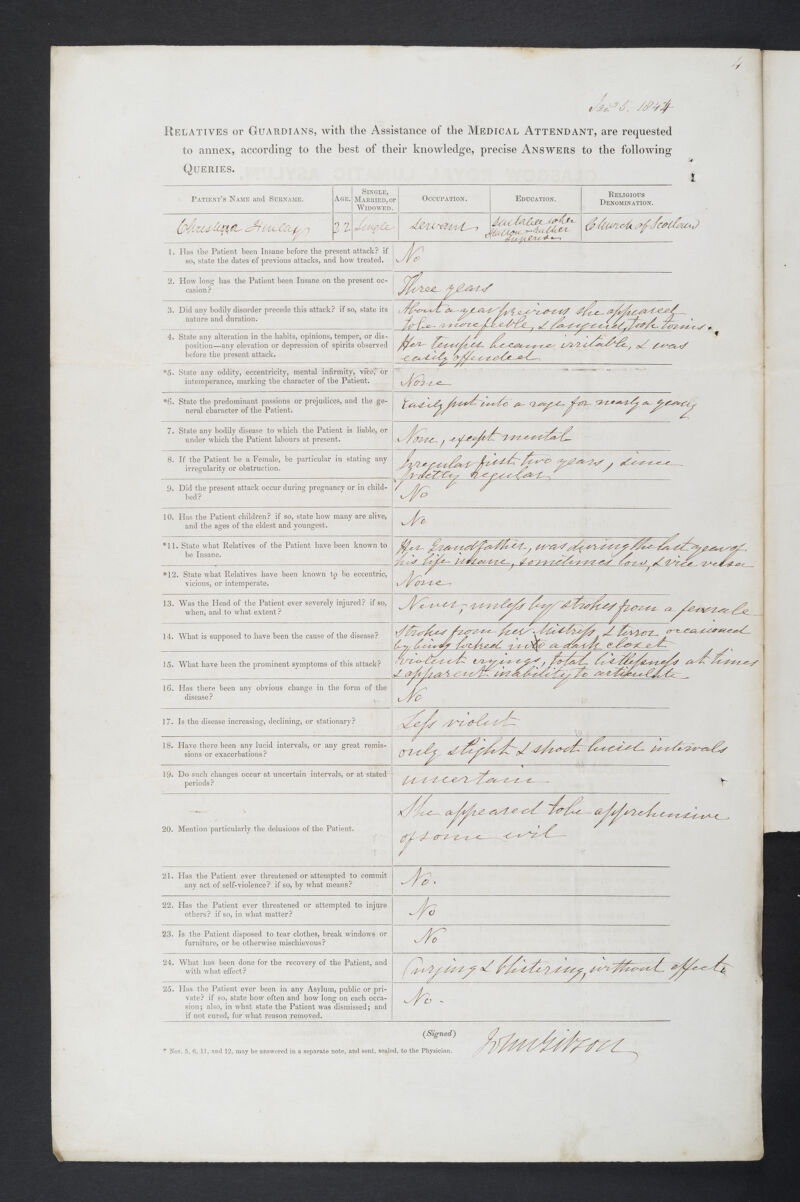 4
5. 1844
RELATIVES or GUARDIANS, with the Assistance of the MEDICAL ATTENDANT, are requested
to annex, according to the best of their knowledge, precise ANSWERS to the following
QUERIES.
PATIENT'S NAME and SURNAME.
AGE.
SINGLE,
MARRIED, or
WIDOWED.
OCCUPATION.
EDUCATION.
RELIGIOUS
DENOMINATION.
Christina Finlay
22
Single
Servant
Suitable to her
Station rather
Superior
Church of Scotland
1. Has the Patient been Insane before the present attack? if
so, state the dates of previous attacks, and how treated.
No
2. How long has the Patient been Insane on the present oc-
casion?
Three years
3. Did any bodily disorder precede this attack? if so, state its
nature and duration.
About a year previous she appeared
to be more feeble, & languid, took
4. State any alteration in the habits, opinions, temper, or dis-
position—any elevation or depression of spirits observed
before the present attack.
Her temper became irritable, & was
easily offended
*5. State any oddity, eccentricity, mental infirmity, vice, or
intemperance, marking the character of the Patient.
None
*6. State the predominant passions or prejudices, and the ge-
neral character of the Patient.
Easily put into a rage for nearly a year
7. State any bodily disease to which the Patient is liable, or
under which the Patient labours at present.
None, except mental
8. If the Patient be a Female, be particular in stating any
irregularity or obstruction.
Irregular first two years, since
pretty regular
9. Did the present attack occur during pregnancy or in child-
bed?
No
10. Has the Patient children? if so, state how many are alive,
and the ages of the eldest and youngest.
No
*11. State what Relatives of the Patient have been known to
be Insane.
Her Grandfather, was during the last year of
his life insane, sometimes low, & vice versa
*12. State what Relatives have been known to be eccentric,
vicious, or intemperate.
None
13. Was the Head of the Patient ever severely injured? if so,
when, and to what extent?
Never, unless by strokes from a female
14. What is supposed to have been the cause of the disease?
Strokes from her Mistress, & terror occasioned
by being locked into a dark closet
15. What have been the prominent symptoms of this attack?
violent cryings, total listlessness at times
& apparent inability to articulate
16. Has there been any obvious change in the form of the
disease?
No
17. Is the disease increasing, declining, or stationary?
Less violent
18. Have there been any lucid intervals, or any great remis-
sions or exacerbations?
only slight & short lucid intervals
19. Do such changes occur at uncertain intervals, or at stated
periods?
uncertain
20. Mention particularly the delusions of the Patient.
She appeared to be apprehensive
of some evil
21. Has the Patient ever threatened or attempted to commit
any act of self-violence? if so, by what means?
No.
22. Has the Patient ever threatened or attempted to injure
others? if so, in what matter?
No
23. Is the Patient disposed to tear clothes, break windows or
furniture, or be otherwise mischievous?
No
24. What has been done for the recovery of the Patient, and
with what effect?
Purging & blistering, without effect.
25. Has the Patient ever been in any Asylum, public or pri-
vate? if so, state how often and how long on each occa-
sion; also, in what state the Patient was dismissed; and
if not cured, for what reason removed.
No.
(Signed)
John Gibson
* Nos. 5, 6, 11, and 12, may be answered in a separate note, and sent, sealed, to the Physician.